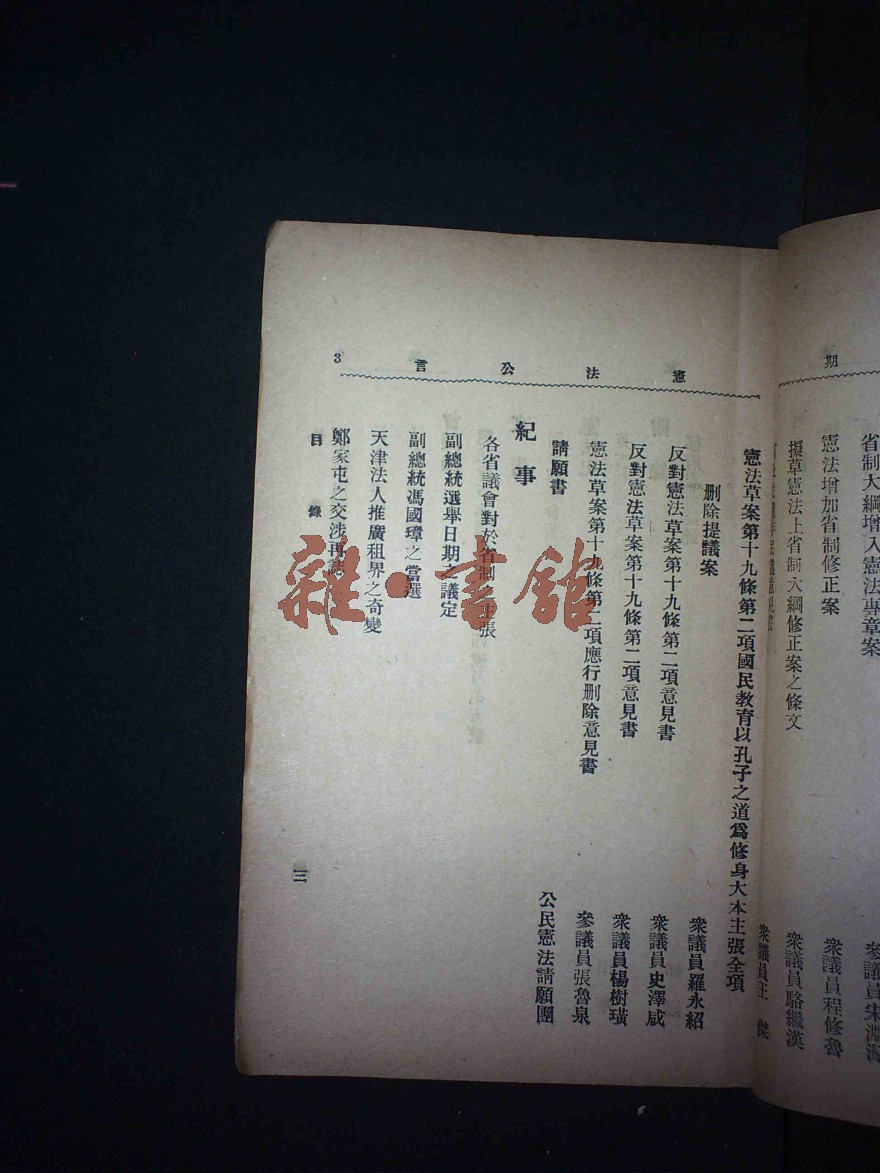 期
省制大綱增入憲法專章案
憲法增加省制修正案
衆議員程修魯
擬草憲法上省制大綱修正案之條文
衆議員駱繼漢
衆議員王傑
憲法公言 3
憲法草案第十九條第二項國民教育以孔子之道爲修身大本主張全項
删除提議案
衆議員羅永紹
反對憲法草案第十九條第二項意見書
衆議員史澤咸
反對憲法草案第十九條第二項意見書
衆議員楊樹璜
憲法草案第十九條第二項應行删除意見書
參議員張魯泉
請願書
公民憲法請願團
紀事
各省議會對於省制之主張
副總統選舉日期之議定
副總統馮國璋之當選
天津法人推廣租界之奇變
鄭家屯之交涉再誌
目錄
三
雜·書館